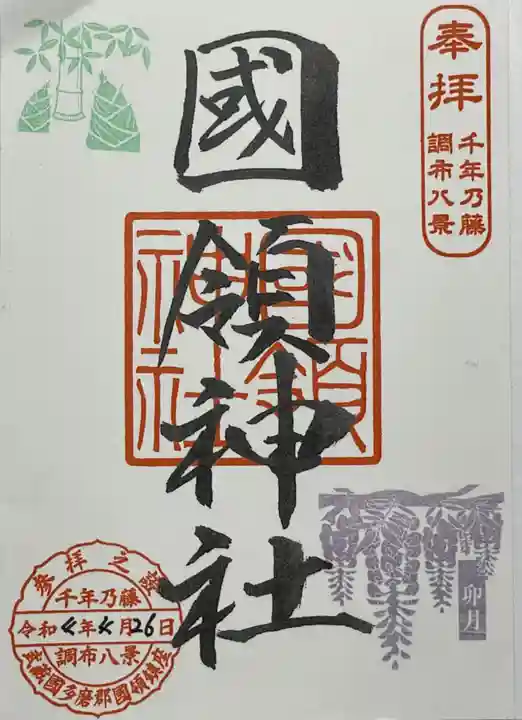 奉拝
千年乃藤
調布八景
國領神社
國領
神社
卯月
參拝之證
千年乃藤
令和4年4月26日
調布八景
武蔵國多磨郡國領鎮座